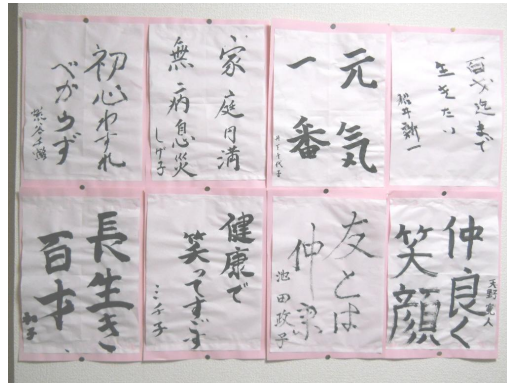 まで
生きたい
元気
一番
家庭円満
無病息災
しげ子
初心わすれ
べからず
熊谷
仲良く
笑顔
天野
友とは
仲
池田政子
健康で
笑ってすごす
ミチ子
長生き
百才